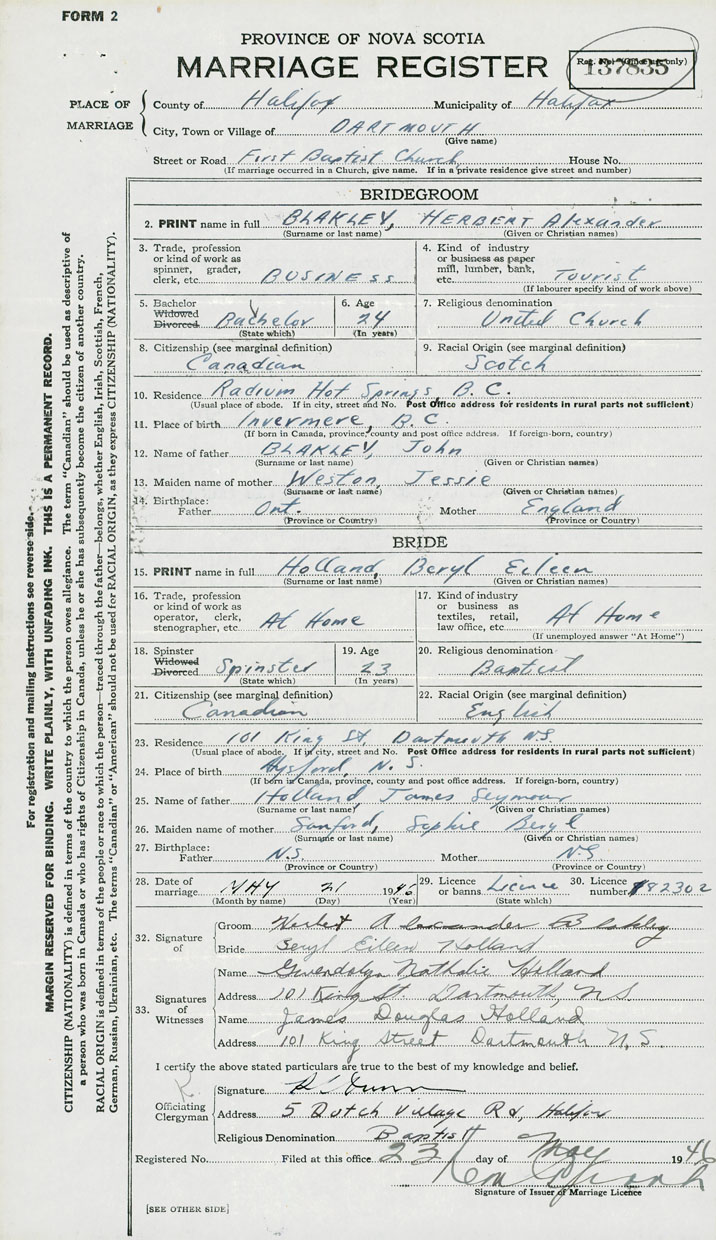 FORM 2
PROVINCE OF NOVA SCOTIA
MARRIAGE REGISTER
Reg. No. (Office use only)
137835
PLACE OF MARRIAGE
County of Halifax Municipality of Halifax
City, Town or Village of DARTMOUTH
(Give name)
Street or Road First Baptist Church House No.
(If marriage occurred in a Church, give name. If in a private residence give street and number)
BRIDEGROOM
2. PRINT name in full BLAKLEY, HERBERT Alexander
(Surname or last name) (Given or Christian names)
3. Trade, profession or kind of work as spinner, grader, clerk, etc. BUSINESS
4. Kind of industry or business as paper mill, lumber, bank, etc. Tourist
(If labourer specify kind of work above)
5. Bachelor Widowed Divorced Bachelor
(State which)
6. Age 24
(In years)
7. Religious denomination United Church
8. Citizenship (see marginal definition) Canadian
9. Racial Origin (see marginal definition) Scotch
10. Residence Radium Hot Springs, B.C.
(Usual place of abode. If in city, street and No. Post Office address for residents in rural parts not sufficient)
11. Place of birth Invermere, B.C.
(If born in Canada, province, county and post office address. If foreign-born, country)
12. Name of father BLAKLEY, John
(Surname or last name) (Given or Christian names)
13. Maiden name of mother Weston, Jessie
(Surname or last name) (Given or Christian names)
14. Birthplace: Father Ont. Mother England
(Province or Country) (Province or Country)
BRIDE
15. PRINT name in full Holland, Beryl Eileen
(Surname or last name) (Given or Christian names)
16. Trade, profession or kind of work as operator, clerk, stenographer, etc At Home
17. Kind of industry or business as textiles, retail, law office, etc At Home
(If unemployed answer "At Home")
18. Spinster Widowed Divorced Spinster
(State which)
19. Age 23
(In years)
20. Religious denomination Baptist
21. Citizenship (see marginal definition) Canadian
22. Racial Origin (see marginal definition) English
23. Residence 101 King St. Dartmouth N.S.
(Usual place of abode. If in city, street and No. Post Office address for residents in rural parts not sufficient)
24. Place of birth N.S.
(If born in Canada, province, county and post office address. If foreign-born, country)
25. Name of father Holland, James Seymour
(Surname or last name) (Given or Christian names)
26. Maiden name of mother Sanford, Sophie Beryl
(Surname or last name) (Given or Christian names)
27. Birthplace: Father N.S. Mother N.S.
(Province or Country) (Province or Country)
28. Date of marriage MAY 21 1946
(Month by name) (Day) (Year)
29. Licence or banns Licence
(State which)
30. Licence number 182302
32. Signature of
Groom Herbert Alexander Blakley
Bride Beryl Eileen Holland
33. Signatures of Witnesses
Name Gwendolyn Nathalie Holland
Address 101 King St. Dartmouth, N S
Name James Douglas Holland
Address 101 King Street Dartmouth N.S.
I certify the above stated particulars are true to the best of my knowledge and belief.
Officiating Clergyman
Signature
Address 5 Dutch Village Rd, Halifax
Religious Denomination Baptist
Registered No. Filed at this office 23 day of May 1946
Signature of Issuer of Marriage Licence
[SEE OTHER SIDE]
For registration and mailing instructions see reverse side.
MARGIN RESERVED FOR BINDING. WRITE PLAINLY, WITH UNFADING INK. THIS IS A PERMANENT RECORD.
CITIZENSHIP (NATIONALITY) is defined in terms of the country to which the person owes allegiance. The term "Canadian" should be used as descriptive of
a person who was born in Canada or who has rights of Citizenship in Canada, unless he or she has subsequently become the citizen of another country.
RACIAL ORIGIN is defined in terms of the people or race to which the person—traced through the father—belongs, whether English, Irish, Scottish, French,
German, Russian, Ukrainian, etc. The terms "Canadian" or "American" should not be used for RACIAL ORIGIN, as they express CITIZENSHIP (NATIONALITY).